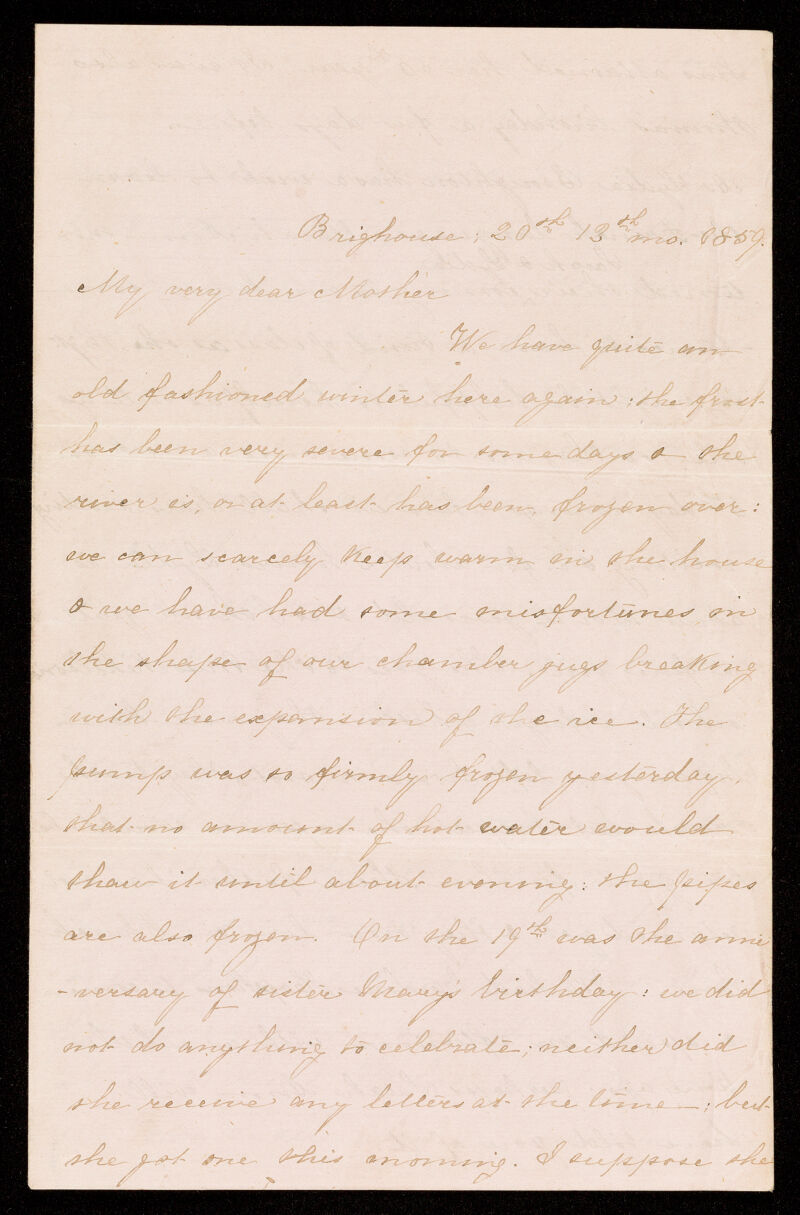 Brighouse; 20th 12th mo. 1859.
My very dear Mother
We have quite an
old fashioned winter here again: the frost
has been very severe for some days & the
river is, or at least has been, frozen over:
we can scarcely keep warm in the house
& we have had some misfortunes in
the shape of our chamber jugs breaking
with the expansion of the ice. The
pump was so firmly frozen yesterday,
that no amount of hot water would
thaw it until about evening: the pipes
are also frozen. On the 19th was the anni
-versary of sister Mary's birthday: we did
not do anything to celebrate; neither did
she receive any letters at the time; but
she got one this morning. I suppose she